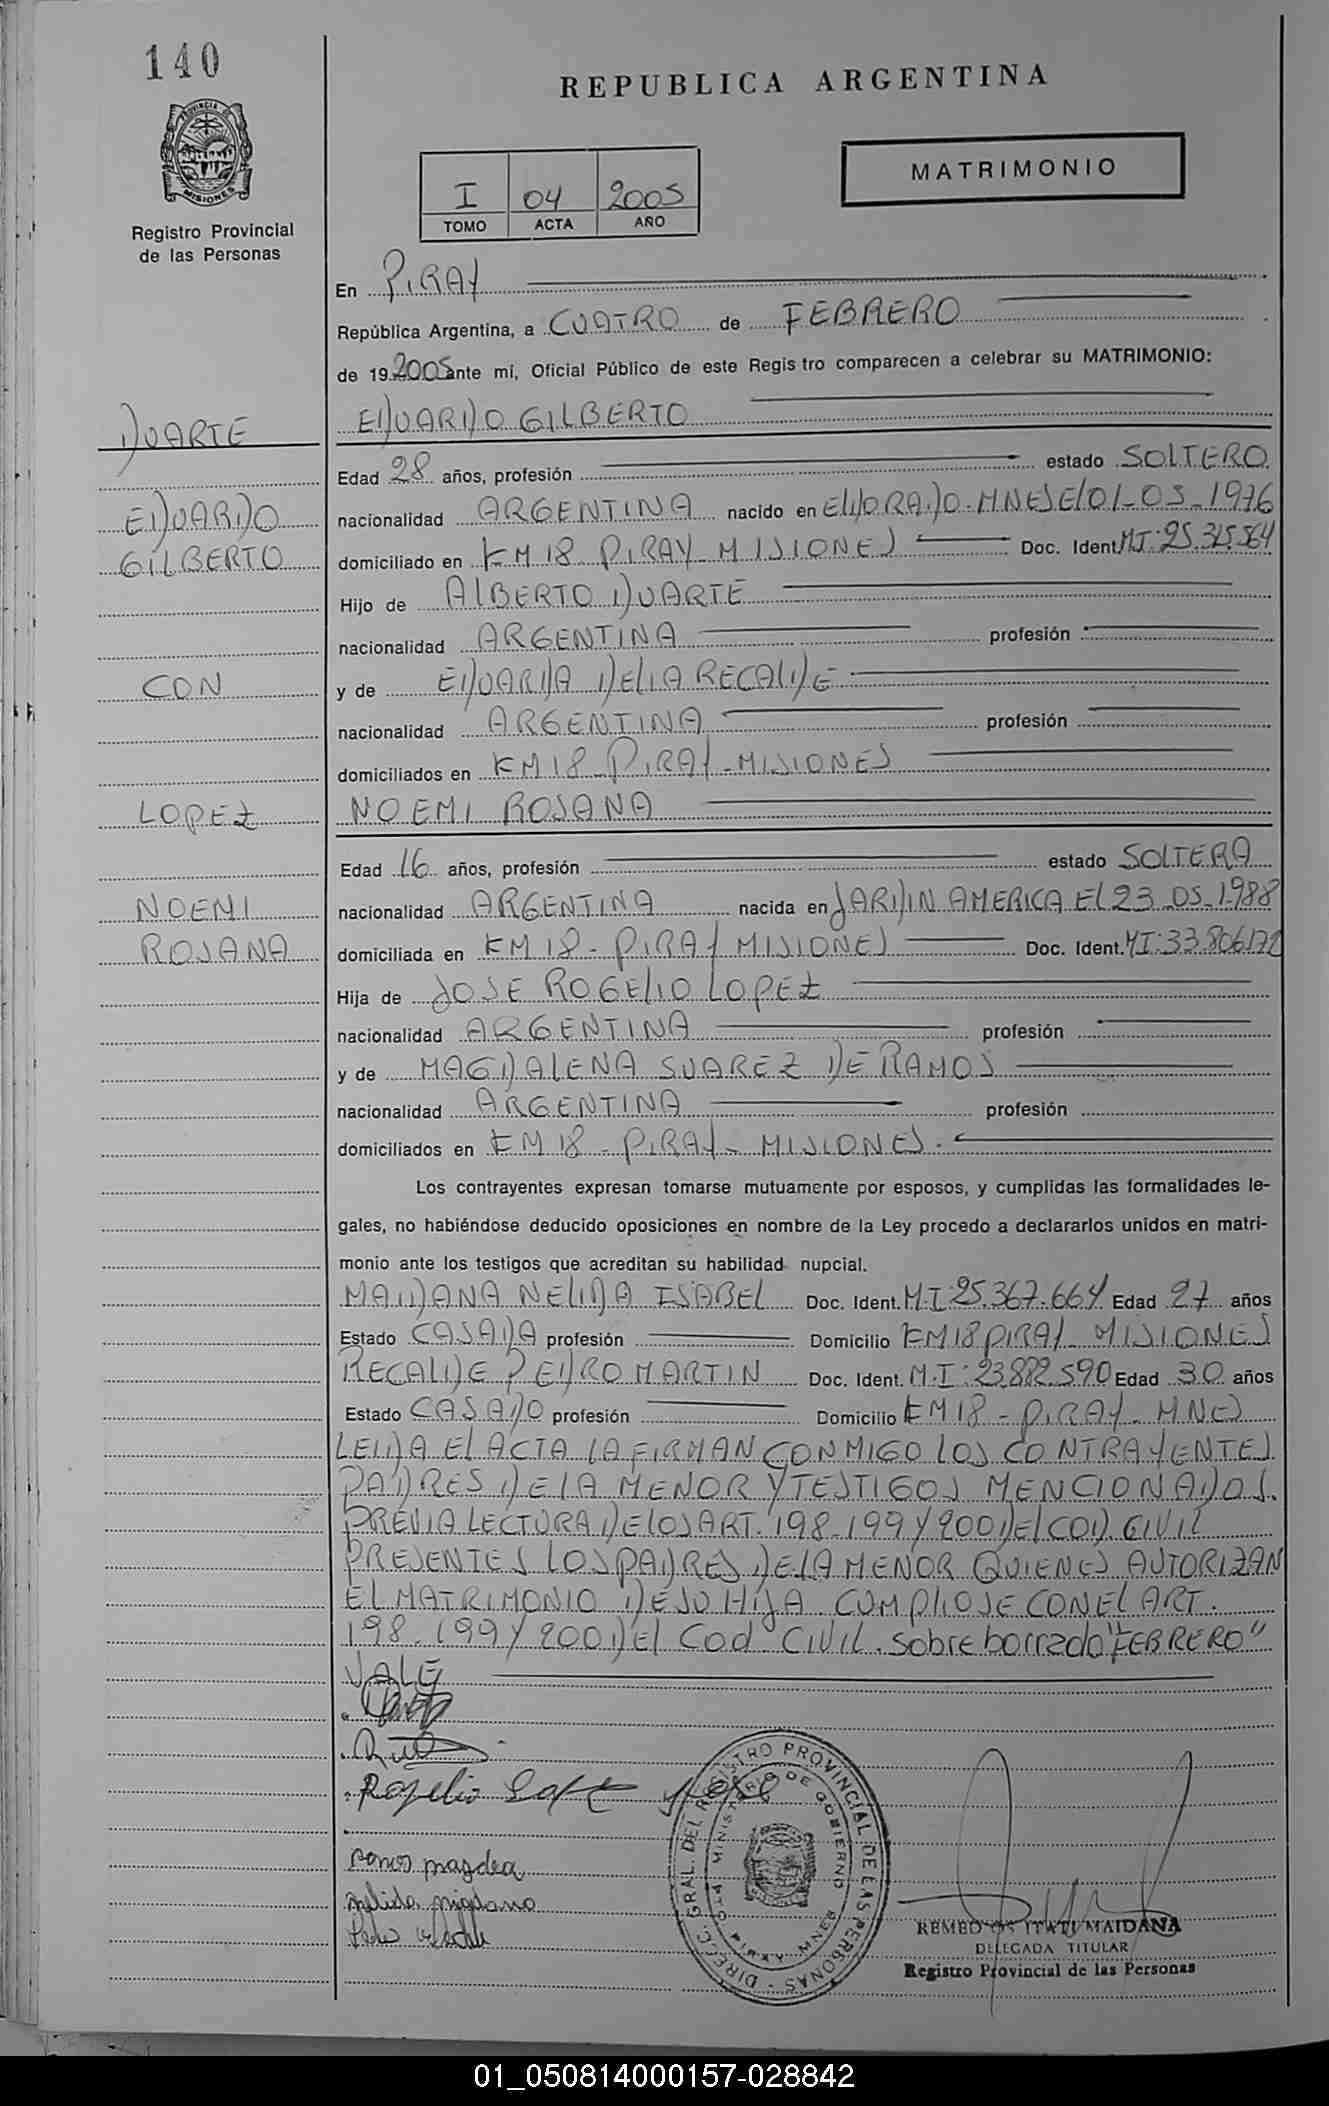 140
REPUBLICA ARGENTINA
PROVINCIA DE
MISIONES
Registro Provincial
de las Personas
MATRIMONIO
I 04 2005
TOMO ACTA AÑO
En PIRAY
República Argentina, a CUATRO de FEBRERO
de 19 2005 ante mí, Oficial Público de este Registro comparecen a celebrar su MATRIMONIO:
DUARTE
EDUARDO GILBERTO
Edad 28 años, profesión estado SOLTERO
EDUARDO
nacionalidad ARGENTINA nacido en ELDORADO-MNES El 01-03-1976
GILBERTO
domiciliado en KM 18 PIRAY-MISIONES Doc. Ident. MI:25.325.564
Hijo de ALBERTO DUARTE
nacionalidad ARGENTINA profesión
CON
y de EDUARDA DELIA RECALDE
nacionalidad ARGENTINA profesión
domiciliados en KM 18-PIRAY-MISIONES
LOPEZ
NOEMI ROSANA
Edad 16 años, profesión estado SOLTERA
NOEMI
nacionalidad ARGENTINA nacida en JARDIN AMERICA El 23-05-1988
ROSANA
domiciliada en KM 18-PIRAY MISIONES Doc. Ident. MI:33.806.172
Hija de JOSE ROGELIO LOPEZ
nacionalidad ARGENTINA profesión
y de MAGDALENA SUAREZ DE RAMOS
nacionalidad ARGENTINA profesión
domiciliados en KM 18-PIRAY-MISIONES.
Los contrayentes expresan tomarse mutuamente por esposos, y cumplidas las formalidades le-
gales, no habiéndose deducido oposiciones en nombre de la Ley procedo a declararlos unidos en matri-
monio ante los testigos que acreditan su habilidad nupcial.
MAIDANA NELIDA ISABEL Doc. Ident. M.I:25.367.664 Edad 27 años
Estado CASADA profesión Domicilio KM 18 PIRAY-MISIONES
RECALDE PEDRO MARTIN Doc. Ident. M.I:23.882.590 Edad 30 años
Estado CASADO profesión Domicilio KM 18-PIRAY-MNES
LEIDA El ACTA LA FIRMAN CONMIGO LOS CONTRAYENTES
PADRES DE LA MENOR Y TESTIGOS MENCIONADOS.
PREVIA LECTURA DE LOS ART. 198-199 Y 200 DEl COD. CIVIL
PRESENTES LOS PADRES DE LA MENOR QUIENES AUTORIZAN
EL MATRIMONIO DE SU HIJA CUMPLIOSE CON EL ART.
198-199 Y 200 DEl COD CIVIL. sobre borrado "FEBRERO"
VALE
Rogelio Lopez Jose
ramos magdea
nelida maidana
DIREC. GRAL. DEL REGISTRO PROVINCIAL DE LAS PERSONAS
MINISTERIO DE GOBIERNO
DELEGADA TITULAR
Registro Provincial de las Personas
01_050814000157-028842